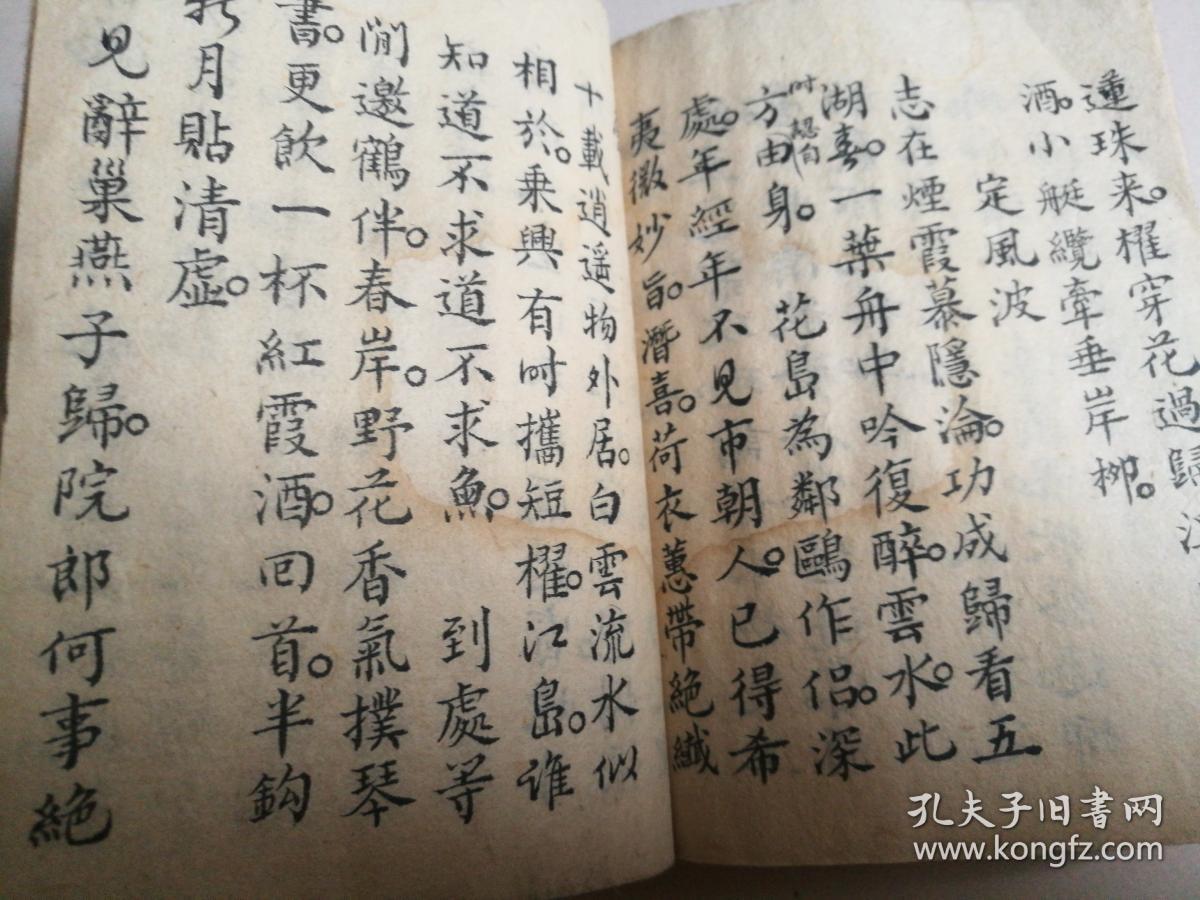 蓮珠来。櫂穿花過歸江
酒。小艇纜牽垂岸柳。
定風波
志在煙霞慕隱淪。功成歸看五
湖春。一葉舟中吟復醉。雲水。此
时方認自由身。 花島為鄰鷗作侶。深
處。年經年不見市朝人。已得希
夷微妙旨。潛喜。荷衣蕙帶絶纖
十載逍遥物外居。白雲流水似
相於。乗興有时攜短櫂。江島。誰
知道不求道不求魚。 到處等
閒邀鶴伴。春岸。野花香氣撲琴
書。更飲一杯紅霞酒。回首。半鈎
月貼清虛。
見辭巢燕子歸。院郎何事絶
孔夫子旧书网
www.kongfz.com